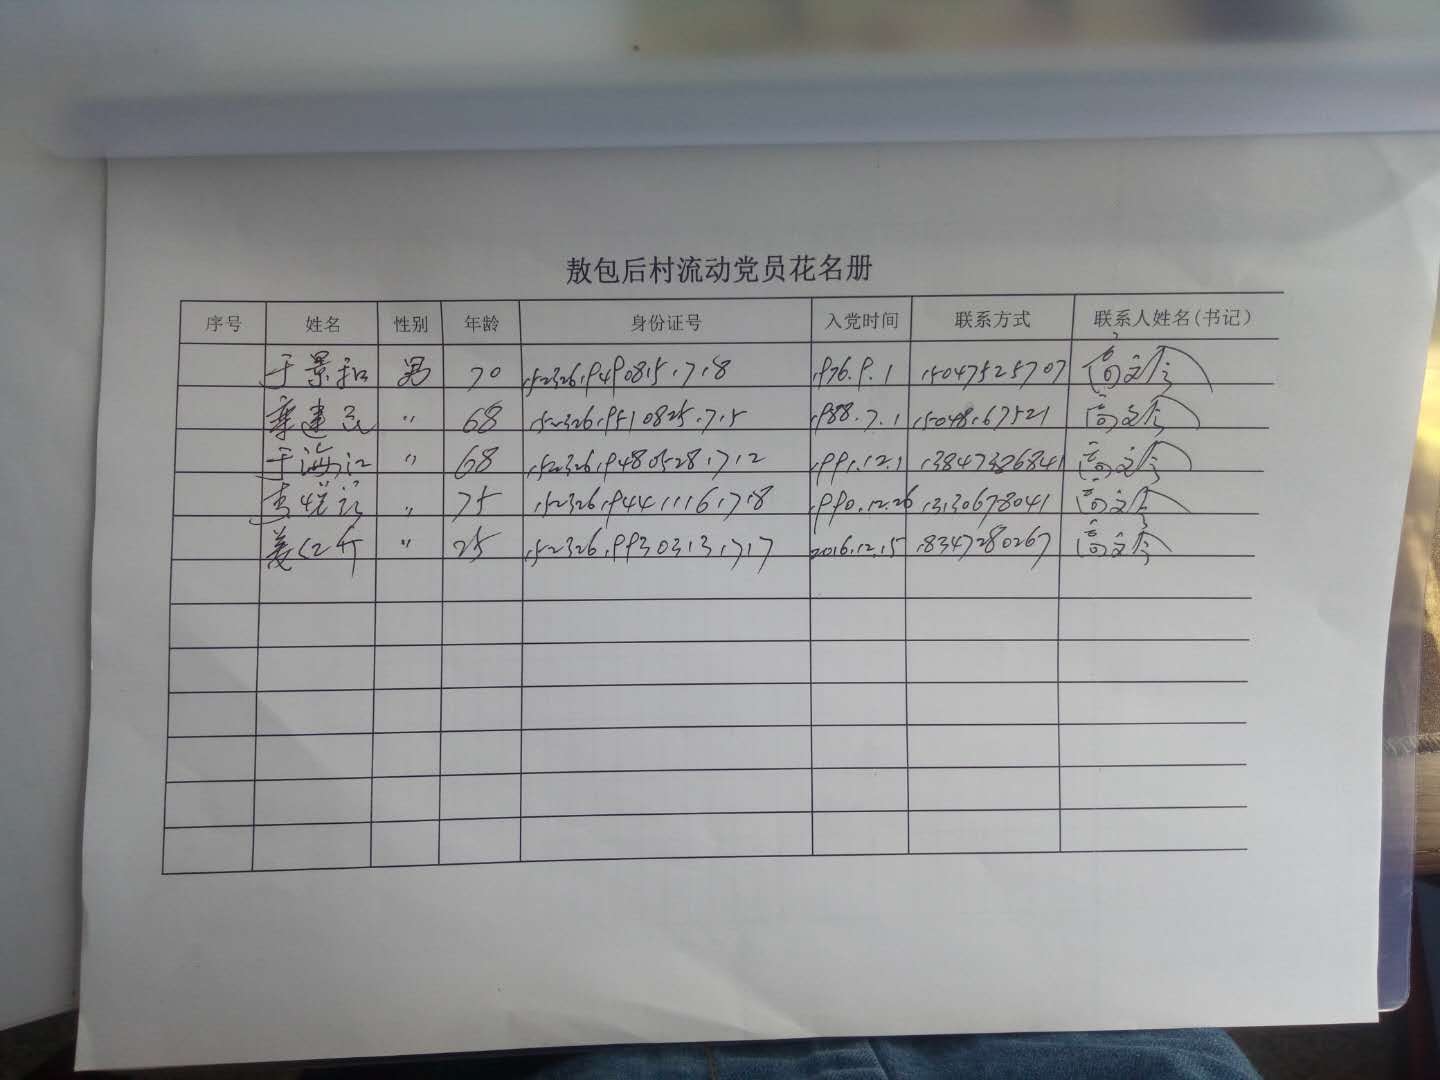 敖包后村流动党员花名册
序号 姓名 性别 年龄 身份证号 入党时间 联系方式 联系人姓名(书记)
于景和 男 70 152326194908151718 1976.9.1 15047525707
建民 〃 68 152326195108251715 1988.7.1 15048167521
于海江 〃 68 152326194805281712 1991.12.1 13847326841
〃 75 152326194411161718 1990.12.26 13130678041
姜 〃 25 152326199303131717 2016.12.15 18347280267